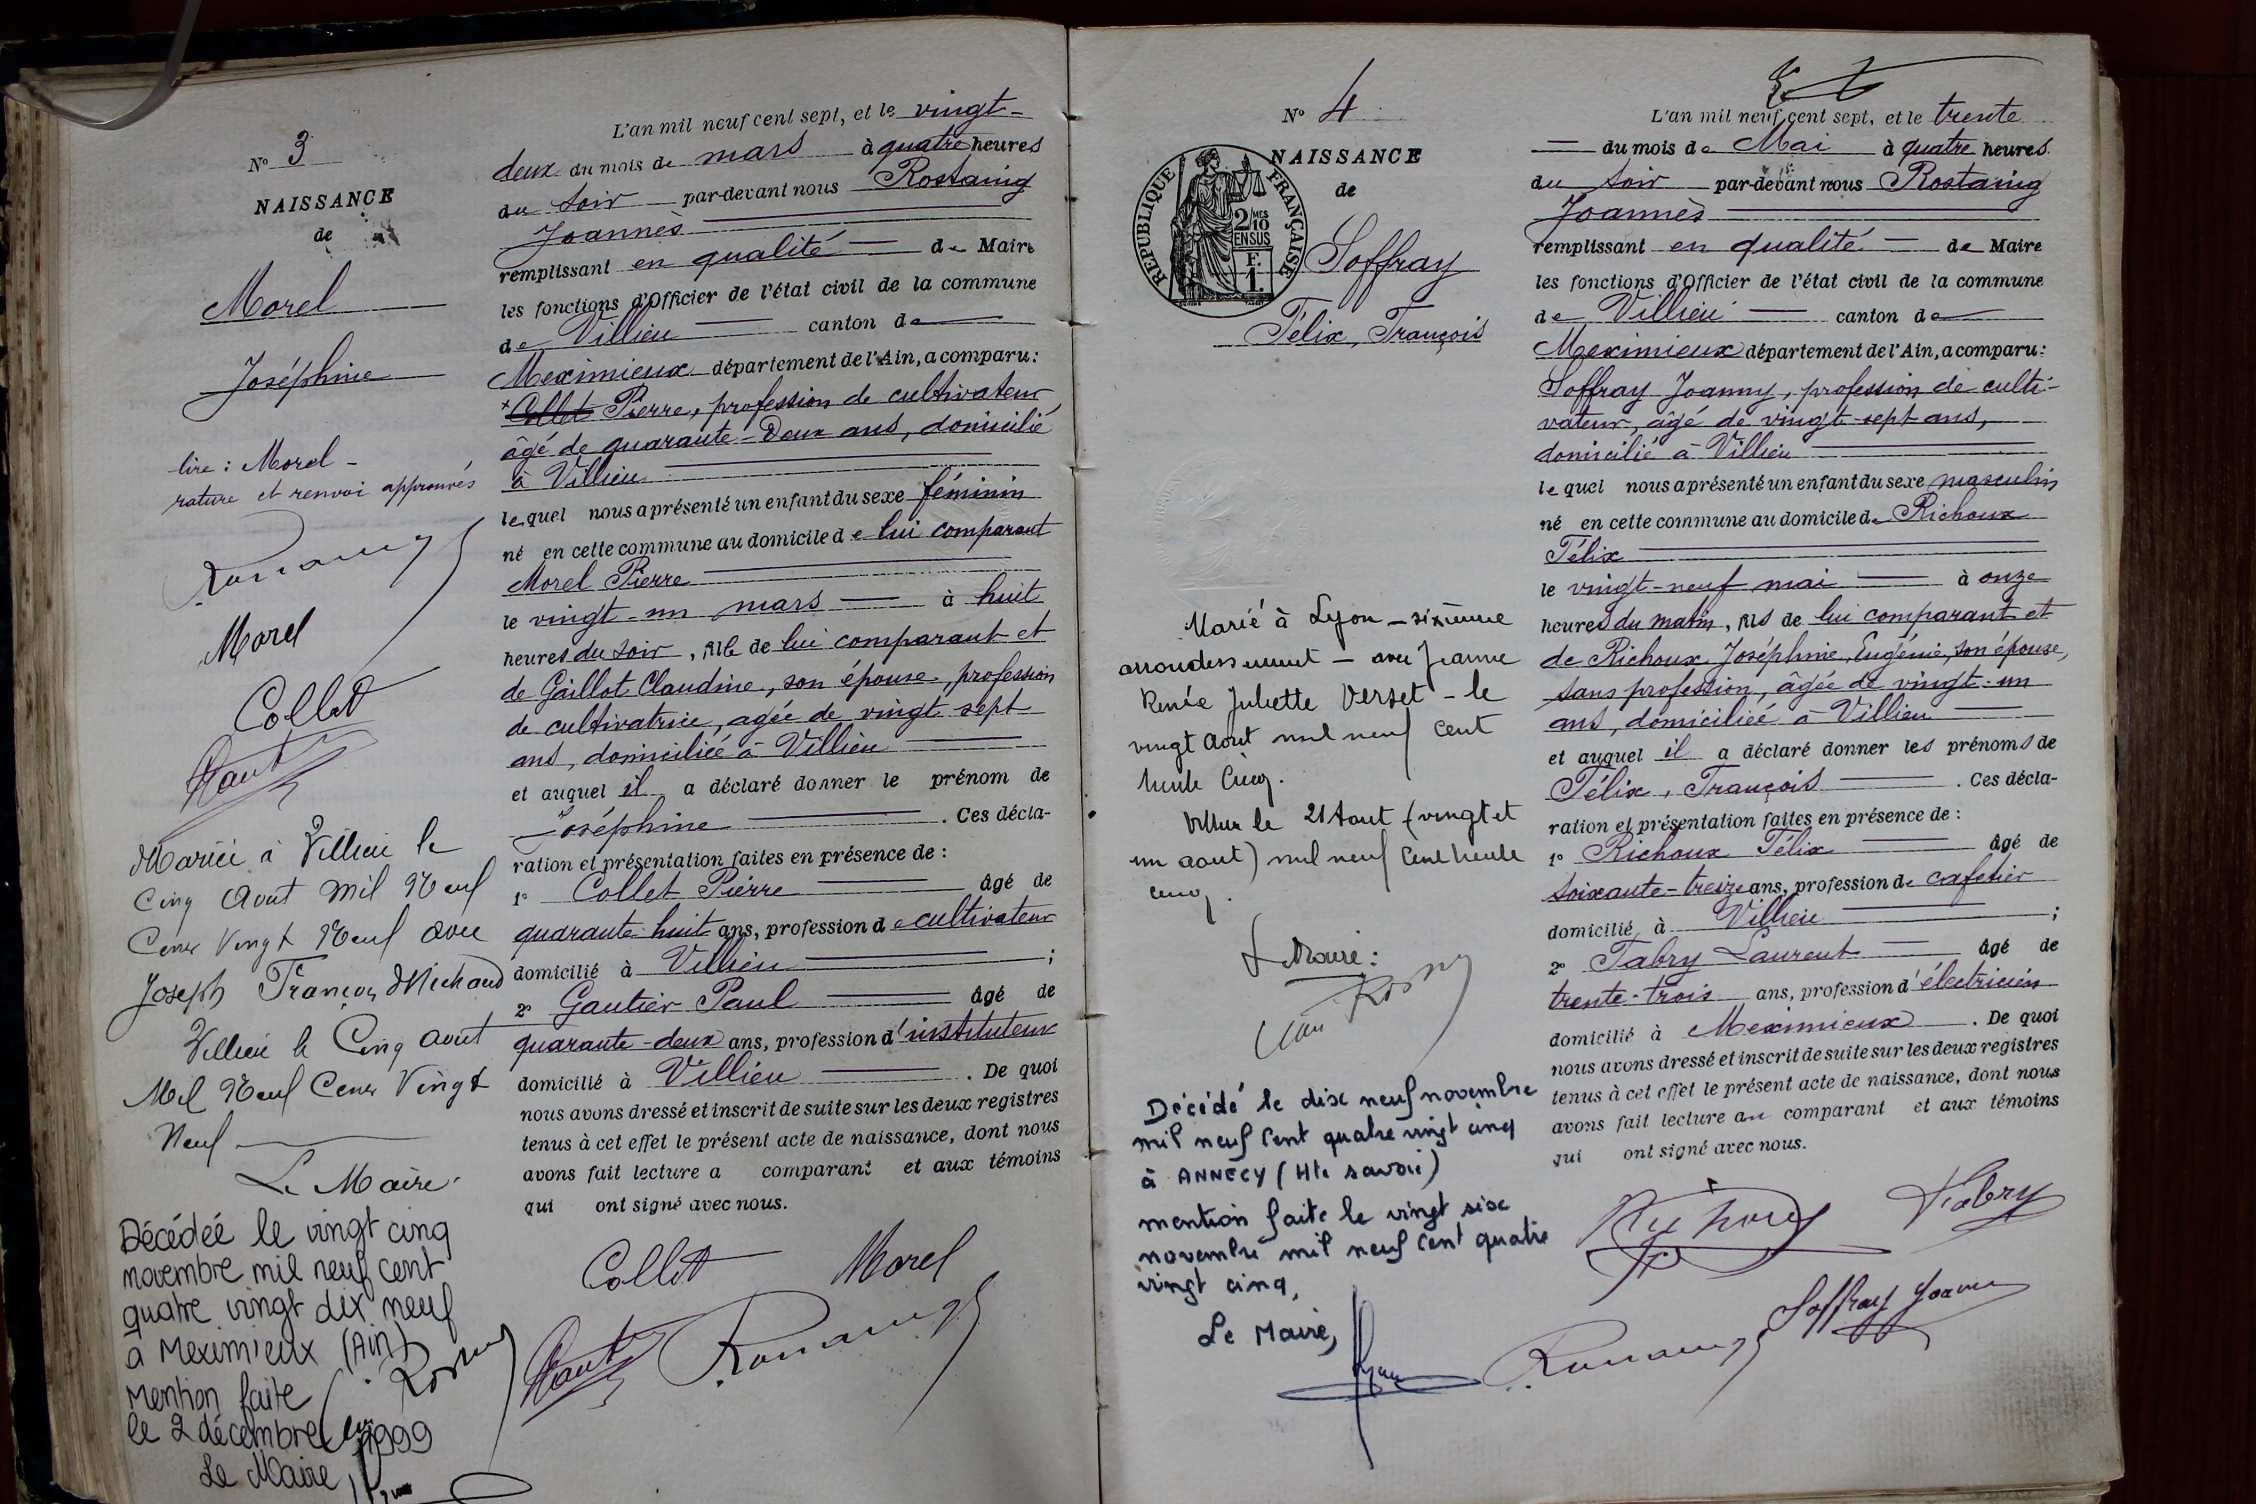 N° 3
NAISSANCE
de
Morel
Joséphine
lire : Morel -
rature et renvoi approuvés
Morel
Collet
Mariée à Villieu le
Cinq Aout Mil Neuf
Cent Vingt Neuf avec
Joseph François Michaud
Villieu le Cinq Aout
Mil Neuf Cent Vingt
Neuf
Le Maire
Décédée le vingt cinq
novembre mil neuf cent
quatre vingt dix neuf
a Meximieux (Ain)
Mention faite
le 2 décembre 1999
Le Maire
L'an mil neuf cent sept, et le vingt-
deux du mois de mars à quatre heures
du soir par-devant nous Rostaing
Joannès
remplissant en qualité de Maire
les fonctions d'Officier de l'état civil de la commune
de Villieu canton de
Meximieux département de l'Ain, a comparu :
+ Collet Pierre, profession de cultivateur
âgé de quarante-Deux ans, domicilié
à Villieu
lequel nous a présenté un enfant du sexe féminin
né en cette commune au domicile de lui comparant
Morel Pierre
le vingt-un mars à huit
heures du soir, fille de lui comparant et
de Gaillot Claudine, son épouse, profession
de cultivatrice, agée de vingt sept
ans, domiciliée à Villieu
et auquel il a déclaré donner le prénom de
Joséphine . Ces décla-
ration et présentation faites en présence de :
1° Collet Pierre âgé de
quarante huit ans, profession de cultivateur
domicilié à Villieu ;
2° Gautier Paul âgé de
quarante-deux ans, profession d'instituteur
domicilié à Villieu . De quoi
nous avons dressé et inscrit de suite sur les deux registres
tenus à cet effet le présent acte de naissance, dont nous
avons fait lecture a comparant et aux témoins
qui ont signé avec nous.
Collet Morel
N° 4
NAISSANCE
de
REPUBLIQUE FRANÇAISE
2/10 MES
EN SUS
F.
1.
Soffray
Félix, François
Marié à Lyon - sixième
arrondissement - avec Jeanne
Renée Juliette Verset - le
vingt Aout mil neuf cent
trente cinq.
Villieu le 21 Aout (vingt et
un aout) mil neuf cent trente
cinq.
Le Maire :
Décédé le dix neuf novembre
mil neuf cent quatre vingt cinq
à ANNECY (Hte savoie)
mention faite le vingt six
novembre mil neuf cent quatre
vingt cinq,
Le Maire,
L'an mil neuf cent sept, et le trente
du mois de Mai à quatre heures
du soir par-devant nous Rostaing
Joannès
remplissant en qualité de Maire
les fonctions d'Officier de l'état civil de la commune
de Villieu canton de
Meximieux département de l'Ain, a comparu :
Soffray Joanny, profession de culti-
vateur, âgé de vingt-sept ans,
domicilié à Villieu
lequel nous a présenté un enfant du sexe masculin
né en cette commune au domicile de Richoux
Félix
le vingt-neuf mai à onze
heures du matin, fils de lui comparant et
de Richoux Joséphine, Eugénie, son épouse,
sans profession, âgée de vingt-un
ans, domiciliée à Villieu
et auquel il a déclaré donner les prénoms de
Félix, François . Ces décla-
ration et présentation faites en présence de :
1° Richoux Félix âgé de
soixante-treize ans, profession de cafetier
domicilié à Villieu ;
2° Fabry Laurent âgé de
trente-trois ans, profession d'électricien
domicilié à Meximieux . De quoi
nous avons dressé et inscrit de suite sur les deux registres
tenus à cet effet le présent acte de naissance, dont nous
avons fait lecture au comparant et aux témoins
qui ont signé avec nous.
Fabry
Soffray